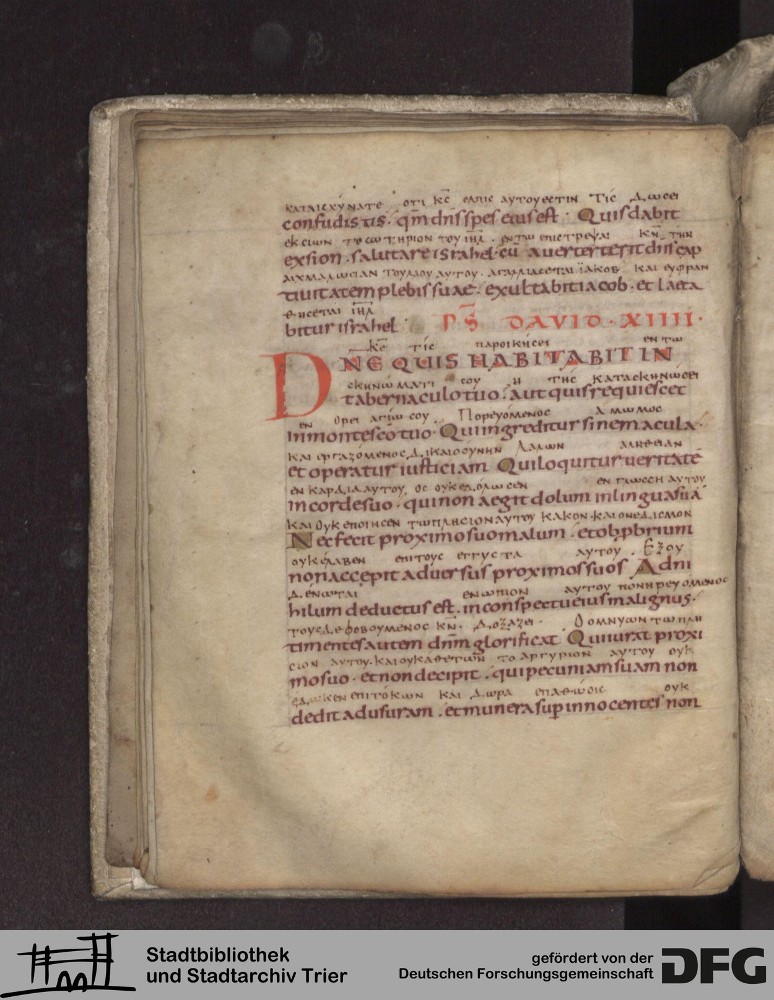 ΚΑΤΑΙϹΧΥΝΑΤΕ ΟΤΙ Κ̅Ϲ ΕΛΠΙϹ ΑΥΤΟΥ ΕϹΤΙΝ ΤΙϹ ΔΩϹΕΙ
confudistis · qm̅ dn̅s spes eius est · Quis dabit
ΕΚ ϹΙΩΝ ΤΟ ϹΩΤΗΡΙΟΝ ΤΟΥ ΙΗ̅Λ · ΕΝ ΤΩ ΕΠΙϹΤΡΕΨΑΙ Κ̅Ν ΤΗΝ
exsion · salutare israhel · cu̅ averterterit dn̅s cap
ΑΙΧΜΑΛΩϹΙΑΝ ΤΟΥ ΛΑΟΥ ΑΥΤΟΥ · ΑΓΑΛΛΙΑϹΕΤΑΙ ΙΑΚΟΒ ΚΑΙ ΕΥΦΡΑΝ
tivitatem plebis suae · exultabit iacob · et laeta
ΘΗϹΕΤΑΙ ΙΗ̅Λ
bitur israhel P̅S DAVID · XIIII ·
Κ̅Ε ΤΙϹ ΠΑΡΟΙΚΗϹΕΙ ΕΝ ΤΩ
DN̅E QUIS HABITABIT IN
ϹΚΗΝΩΜΑΤΙ ϹΟΥ Η ΤΙϹ ΚΑΤΑϹΚΗΝΩϹΕΙ
tabernaculo tuo · aut quis requiescet
ΕΝ ΟΡΕΙ ΑΓΙΩ ϹΟΥ ΠΟΡΕΥΟΜΕΝΟϹ ΑΜΩΜΟϹ
in monte sc̅o tuo · Qui ingreditur sine macula ·
ΚΑΙ ΕΡΓΑΖΟΜΕΝΟϹ ΔΙΚΑΙΟϹΥΝΗΝ ΛΑΛΩΝ ΑΛΗΘΕΙΑΝ
et operatur iusticiam Qui loquitur veritate̅
ΕΝ ΚΑΡΔΙΑ ΑΥΤΟΥ ΟϹ ΟΥΚ ΕΔΟΛΩϹΕΝ ΕΝ ΓΛΩϹϹΗ ΑΥΤΟΥ
in corde suo · qui non aegit dolum in lingua sua
ΚΑΙ ΟΥΚ ΕΠΟΙΗϹΕΝ ΤΩ ΠΛΗϹΙΟΝ ΑΥΤΟΥ ΚΑΚΟΝ · ΚΑΙ ΟΝΕΔΙϹΜΟΝ
Nec fecit proximo suo malum · et obp̅brium
ΟΥΚ ΕΛΑΒΕΝ ΕΠΙ ΤΟΥϹ ΕΓΓΥϹΤΑ ΑΥΤΟΥ · ΕΞΟΥ
non accepit adversus proximos suos Ad ni
ΔΕΝΩΤΑΙ ΕΝΩΠΙΟΝ ΑΥΤΟΥ ΠΟΝΗΡΕΥΟΜΕΝΟϹ
hilum deductus est · in conspectu eius malignus ·
ΤΟΥϹ ΔΕ ΦΟΒΟΥΜΕΝΟϹ Κ̅Ν · ΔΟΞΑΖΕΙ · Ο ΟΜΝΥΩΝ ΤΩ ΠΛΗ
timentes autem dn̅m glorificat · Qui iurat proxi
ϹΙΟΝ ΑΥΤΟΥ · ΚΑΙ ΟΥΚ ΑΘΕΤΩΝ ΤΟ ΑΡΓΥΡΙΟΝ ΑΥΤΟΥ ΟΥΚ
mo suo · et non decipit · qui pecuniam suam non
ΕΔΩΚΕΝ ΕΠΙ ΤΟΚΩΝ ΚΑΙ ΔΩΡΑ ΕΠ ΑΘΩΟΙϹ ΟΥΚ
dedit ad usuram · et munera sup̅ innocentes non
Stadtbibliothek
und Stadtarchiv Trier
gefördert von der
Deutschen Forschungsgemeinschaft
DFG